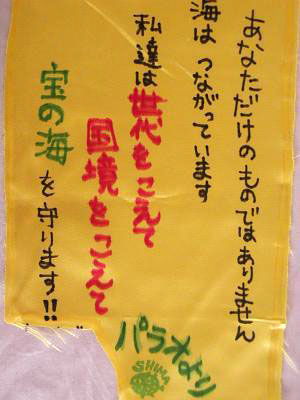 あなただけのものではありません
海は つながっています
私達は世代をこえて
国境をこえて
宝の海を守ります!!
パラオより
SHIMA